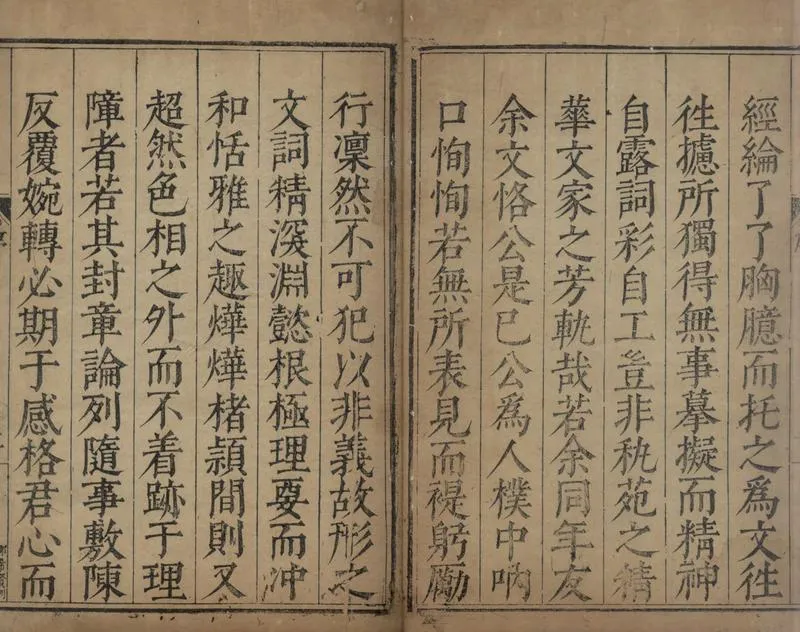 經綸了了胸臆而托之爲文徃
徃攄所獨得無事摹擬而精神
自露詞彩自工豈非秇苑之精
華文家之芳軌哉若余同年友
余文恪公是已公爲人樸中吶
口恂恂若無所表見而禔躬勵
行凜然不可犯以非義故形之
文詞精深淵懿根極理要而冲
和恬雅之趣燁燁楮頴間則又
超然色相之外而不着跡于理
障者若其封章論列隨事敷陳
反覆婉轉必期于感格君心而